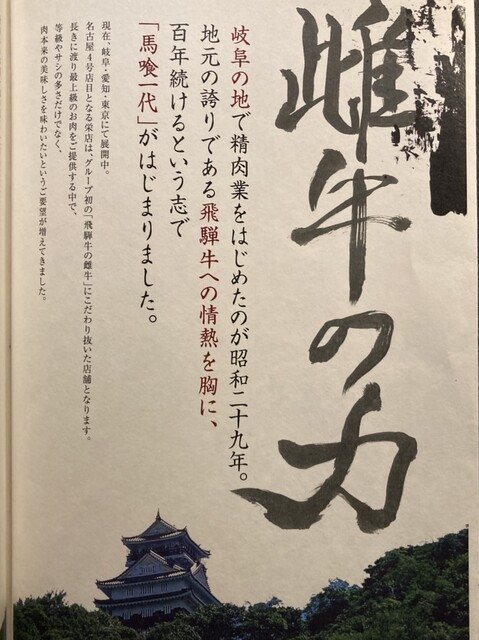 雌牛の力
岐阜の地で精肉業をはじめたのが昭和二十九年。
地元の誇りである飛騨牛への情熱を胸に、
百年続けるという志で
「馬喰一代」がはじまりました。
現在、岐阜・愛知・東京にて展開中。
名古屋４号店目となる栄店は、グループ初の「飛騨牛の雌牛」にこだわり抜いた店舗となります。
長きに渡り最上級のお肉をご提供する中で、
等級やサシの多さだけでなく、
肉本来の美味しさを味わいたいというご要望が増えてきました。